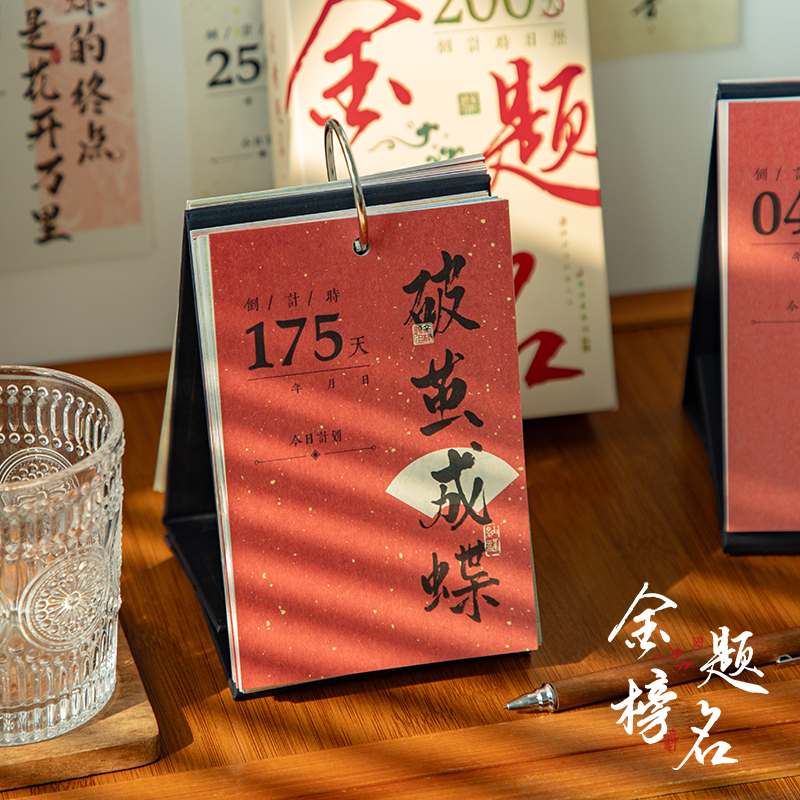 的终点
是花开万里
倒/計/
25
200天
倒計時日歷
金
题
名
倒/計/時
175天
年 月 日
今日計划
破茧成蝶
倒/計
04
年
今
金榜
题名